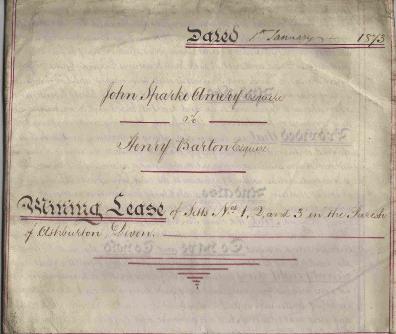 Dated 1st January 1873
John Sparke Amery Esquire
To
Henry Barton Esquire
Mining Lease of Setts Nos 1, 2, and 3 in the Parish
of Ashburton Devon.